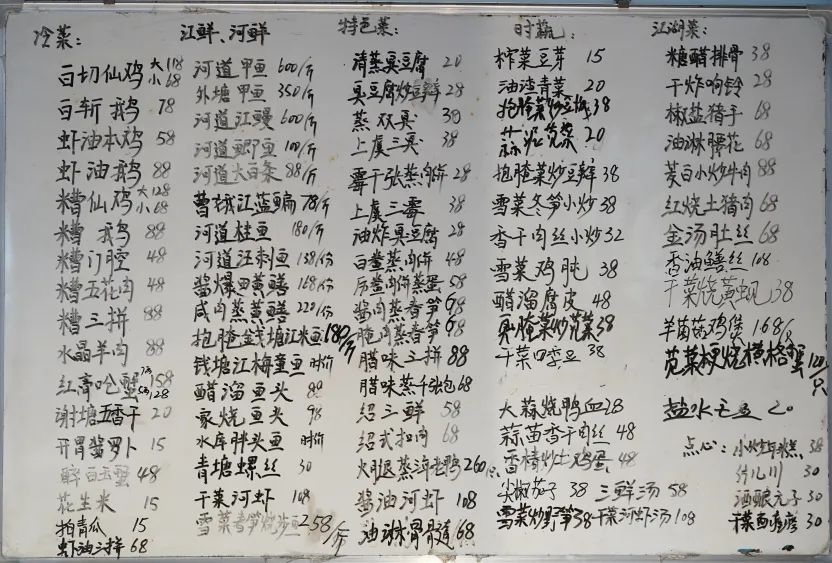 冷菜:
白切仙鸡 大118 小68
白斩鹅 78
虾油本鸡 58
虾油鹅 88
糟仙鸡 大128 小68
糟鹅 88
糟门腔 48
糟五花肉 48
糟三拼 88
水晶羊肉 88
红膏呛蟹 158 128
谢塘五香干 20
开胃酱萝卜 15
醉白玉蟹 48
花生米 15
拍青瓜 15
虾油三拼 68
江鲜、河鲜
河道甲鱼 600/斤
外塘甲鱼 350/斤
河道江鳗 600/斤
河道鲫鱼 100/斤
河道大白条 88/斤
曹娥江蓝鳊 78/斤
河道桂鱼 180/斤
河道汪刺鱼 138/份
酱爆田黄鳝 168/份
咸肉蒸黄鳝 220/份
抱腌钱塘江米鱼 180/斤
钱塘江梅童鱼 时价
醋溜鱼头 88
家烧鱼头 98
水库胖头鱼 时价
青塘螺丝 30
干菜河虾 108
雪菜春笋烧步鱼 258/斤
特色菜:
清蒸臭豆腐 20
臭豆腐炒豆瓣 28
蒸双臭 30
上虞三臭 38
霉千张蒸肉饼 28
上虞三霉 38
油炸臭豆腐 28
白鲞蒸肉饼 48
肉饼蒸蛋 58
酱肉蒸春笋 68
腌肉蒸春笋 68
腊味三拼 88
腊味蒸千张包 68
绍三鲜 58
绍式扣肉 68
火腿蒸湖老鸭 260/只
酱油河虾 108
油淋骨骨道 68
时蔬:
榨菜豆芽 15
油渣青菜 20
抱腌菜炒豆板 38
蒜泥苋菜 20
抱腌菜炒豆瓣 38
雪菜冬笋小炒 38
香干肉丝小炒 32
雪菜鸡肫 38
醋溜腐皮 48
臭腌菜炒苋菜 38
干菜四季豆 38
大蒜烧鸭血 28
蒜苗香干肉丝 48
香椿炒土鸡蛋 48
尖椒茄子 38 三鲜汤 58
雪菜炒野笋 38 干菜河虾汤 108
江湖菜:
糖醋排骨 38
干炸响铃 28
椒盐猪手 68
油淋腰花 68
茭白小炒牛肉 88
红烧土猪肉 68
金汤肚丝 68
香油鳝丝 108
干菜烧黄蚬 38
羊菌菇鸡煲 168/只
苋菜梗烧横格蟹 120/只
盐水毛豆 20
点心: 小炒年糕 38
片儿川 30
酒酿元子 30
干菜面疙瘩 30